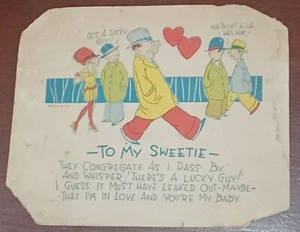 HE'S A LUCKY
GUY!
OH BOY! WISH
I WAS HIM!
—TO MY SWEETIE—
THEY CONGREGATE AS I PASS BY,
AND WHISPER "THERE'S A LUCKY GUY!"
I GUESS IT MUST HAVE LEAKED OUT—MAYBE—
THAT I'M IN LOVE AND YOU'RE MY BABY.